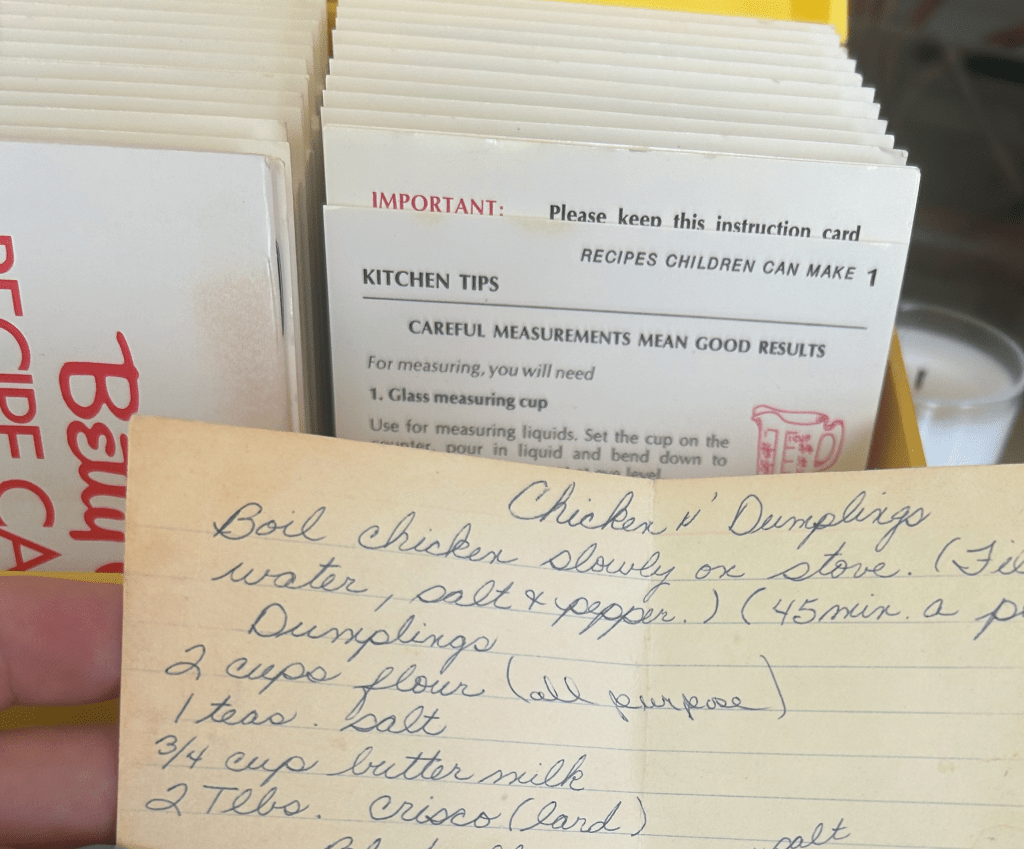 IMPORTANT: Please keep this instruction card
RECIPES CHILDREN CAN MAKE 1
KITCHEN TIPS
CAREFUL MEASUREMENTS MEAN GOOD RESULTS
For measuring, you will need
1. Glass measuring cup
Use for measuring liquids. Set the cup on the
counter, pour in liquid and bend down to
level
RECIPE CA
Betty
Chicken N' Dumplings
Boil chicken slowly on stove. (Fil
water, salt & pepper.) (45 min. a
Dumplings
2 cups flour (all purpose)
1 teas. salt
3/4 cup butter milk
2 Tlbs. Crisco (lard)
salt